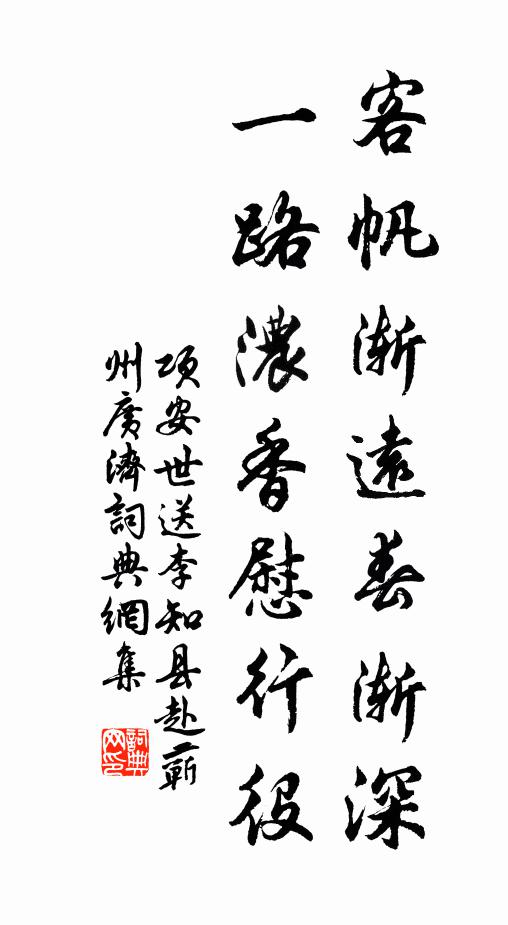 客帆渐遠春渐深
一路濃香慰行役
项安世送李知县赴蕲
州廣濟詞典網集
詞典
网印